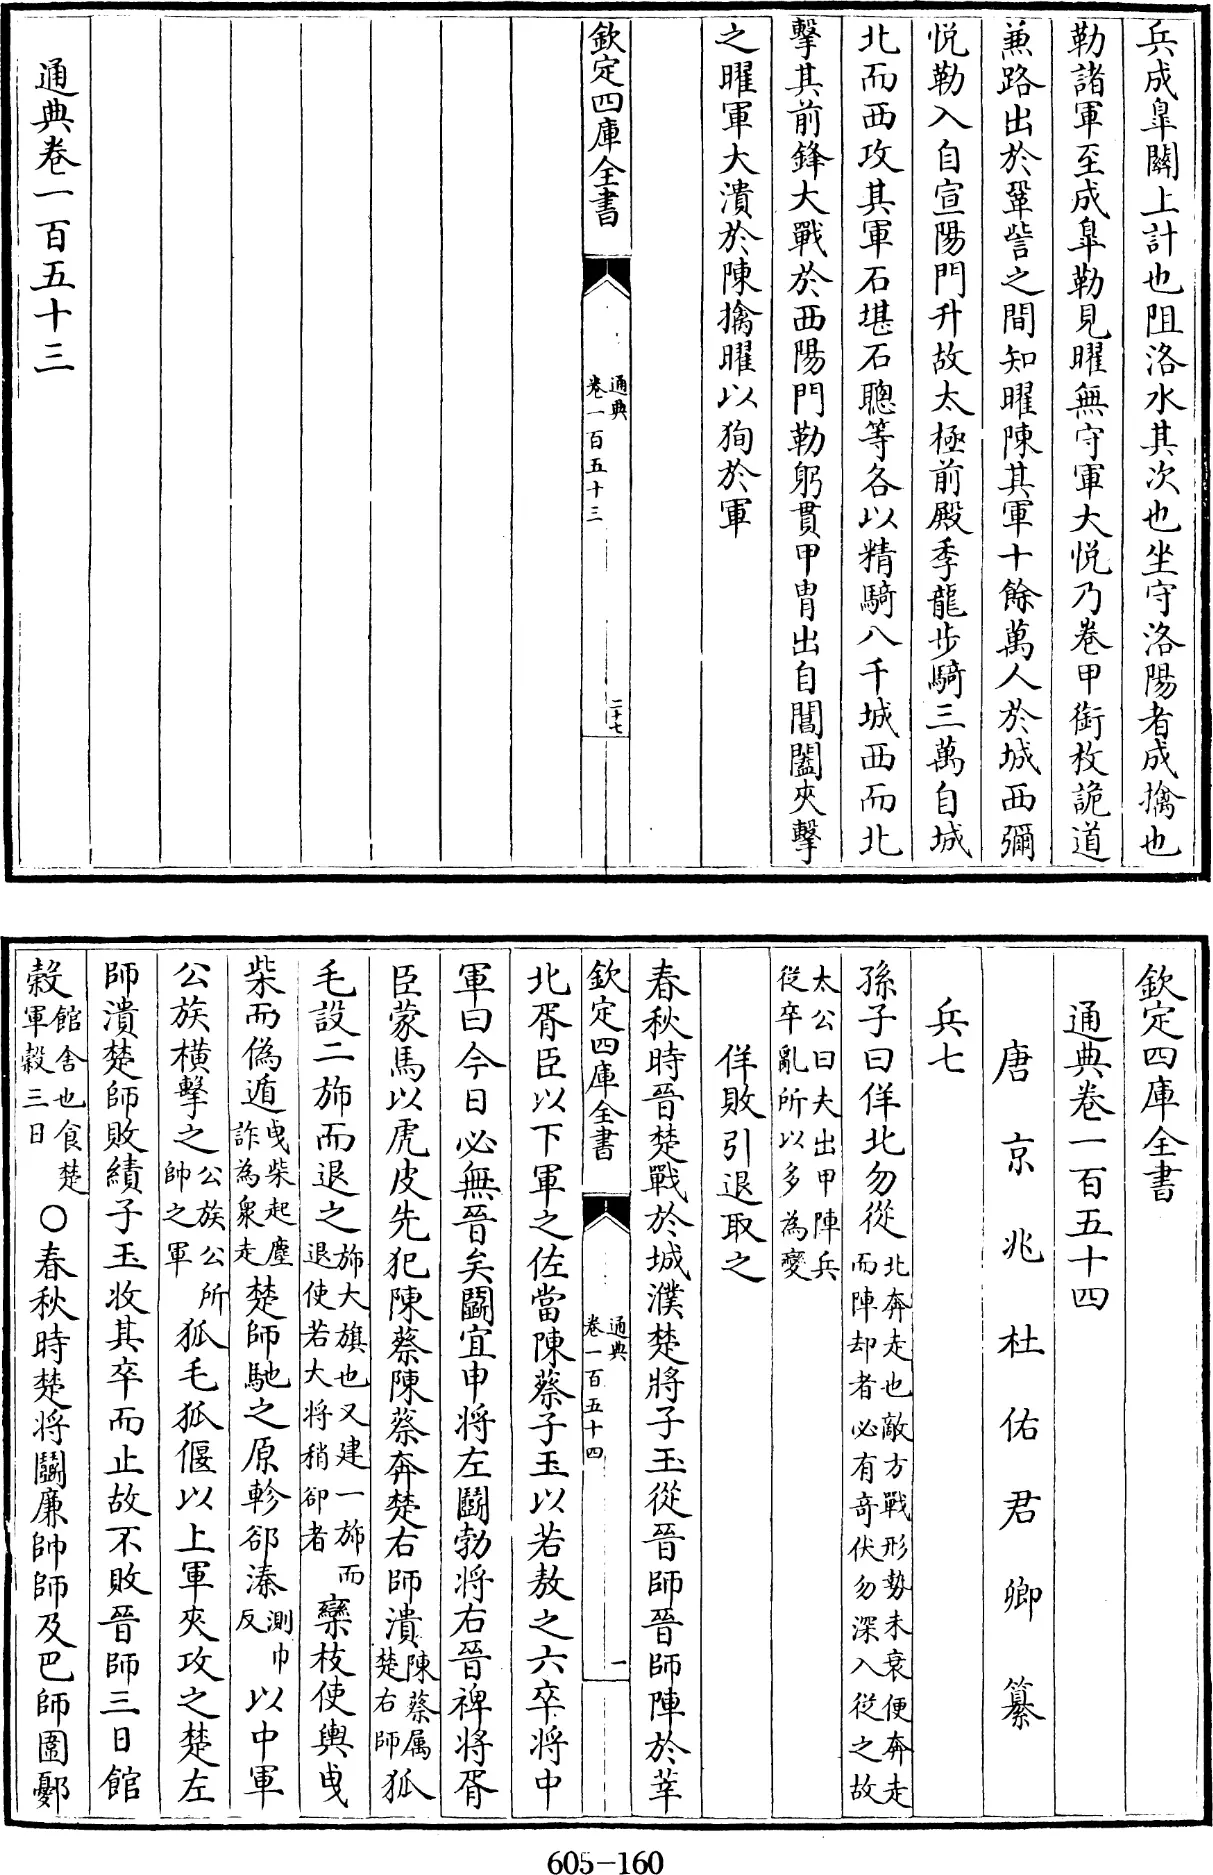 兵成臯關上計也阻洛水其次也坐守洛陽者成擒也
勒諸軍至成臯勒見曜無守軍大悦乃卷甲銜枚詭道
兼路出於鞏訾之間知曜陳其軍十餘萬人於城西彌
悦勒入自宣陽門升故太極前殿季龍步騎三萬自城
北而西攻其軍石堪石聰等各以精騎八千城西而北
擊其前鋒大戰於西陽門勒躬貫甲胄出自閶闔夾擊
之曜軍大潰於陳擒曜以狥於軍
欽定四庫全書
通典
卷一百五十三
二十七
通典卷一百五十三
欽定四庫全書
通典卷一百五十四
唐京兆杜佑君卿纂
兵七
孫子曰佯北勿從北奔走也敵方戰形勢未衰便奔走而陣却者必有奇伏勿深入從之故
太公曰夫出甲陣兵從卒亂所以多為變
佯敗引退取之
春秋時晉楚戰於城濮楚將子玉從晉師晉師陣於莘
欽定四庫全書
通典
卷一百五十四
一
北胥臣以下軍之佐當陳蔡子玉以若敖之六卒將中
軍曰今日必無晉矣鬭宜申將左鬭勃將右晉裨將胥
臣蒙馬以虎皮先犯陳蔡陳蔡奔楚右師潰陳蔡属楚右師狐
毛設二斾而退之斾大旗也又建一斾而退使若大将稍卻者欒枝使輿曳
柴而偽遁曳柴起塵詐為衆走楚師馳之原軫郤溱測巾反以中軍
公族橫擊之公族公所帥之軍狐毛狐偃以上軍夾攻之楚左
師潰楚師敗績子玉收其卒而止故不敗晉師三日館
穀館舍也食楚軍穀三日○春秋時楚將鬭廉帥師及巴師圍鄾
605-160